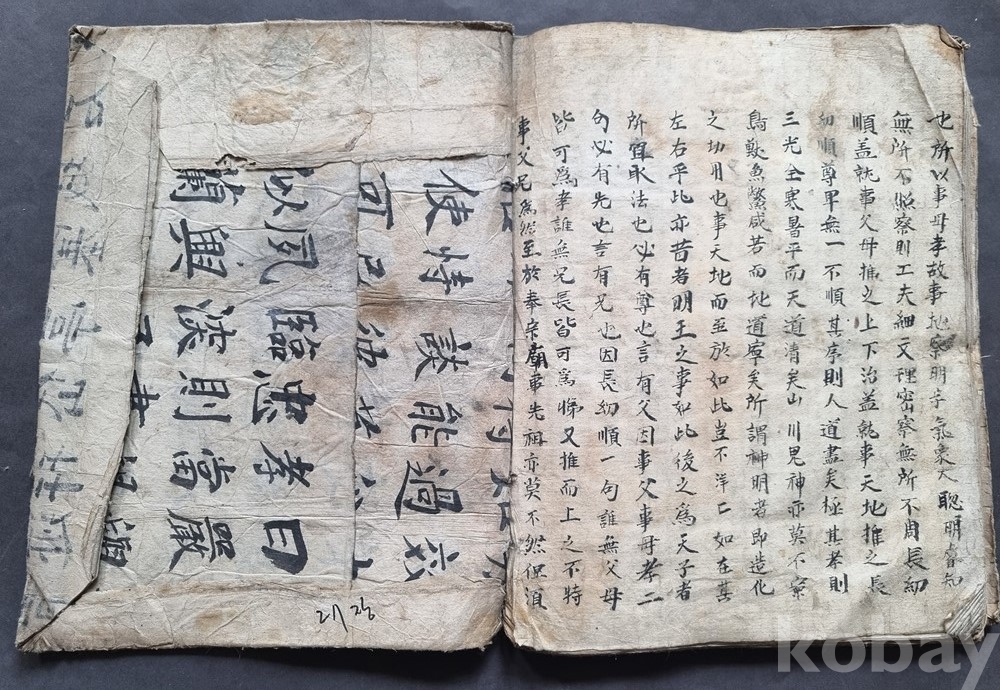 也所以事母孝故事地察明字氣象大聰明睿知
無所不照察則工夫細文理密察無所不周長幼
順盖就事父母推之上下治盖就事天地推之長
幼順尊卑無一不順其序則人道盡矣極其孝則
三光全寒暑平而天道清矣山川鬼神亦莫不寧
鳥獸魚鱉咸若而地道寧矣所謂神明者即造化
之功用也事天地而至於如此豈不洋二如在其
左右乎此亦昔者明王之事如此後之為天子者
所宜取法也必有尊也言有父因事父事母孝二
句必有先也言有兄也因長幼順一句誰無父母
皆可為孝誰無兄長皆可為悌又推而上之不特
事父兄為然至於奉宗廟事先祖亦莫不然但須
使恃談能過
可
似夙臨忠孝曰
蘭興深則當嚴
21장
kobay